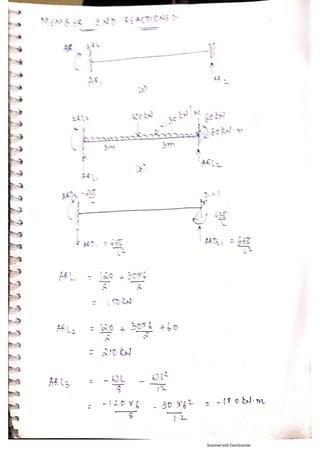 MEMBER END REACTIONS:
AR2
AR1
AR2
(a)
120kN
30kN/m
60kN
ARL2
80kN.m
3m
3m
ARL2
(b)
ARL1
D=1
ARD1 = 6EI/L²
ARD2 = 6EI/L²
ARL1 = 120/2 + 30×6/2
= 150kN
ARL2 = 120/2 + 30×6/2 + 60
= 210kN
ARL3 = -WL/8 - Wl²/12
= -120×6/8 - 30×6²/12 = -180kN.m
Scanned with CamScanner